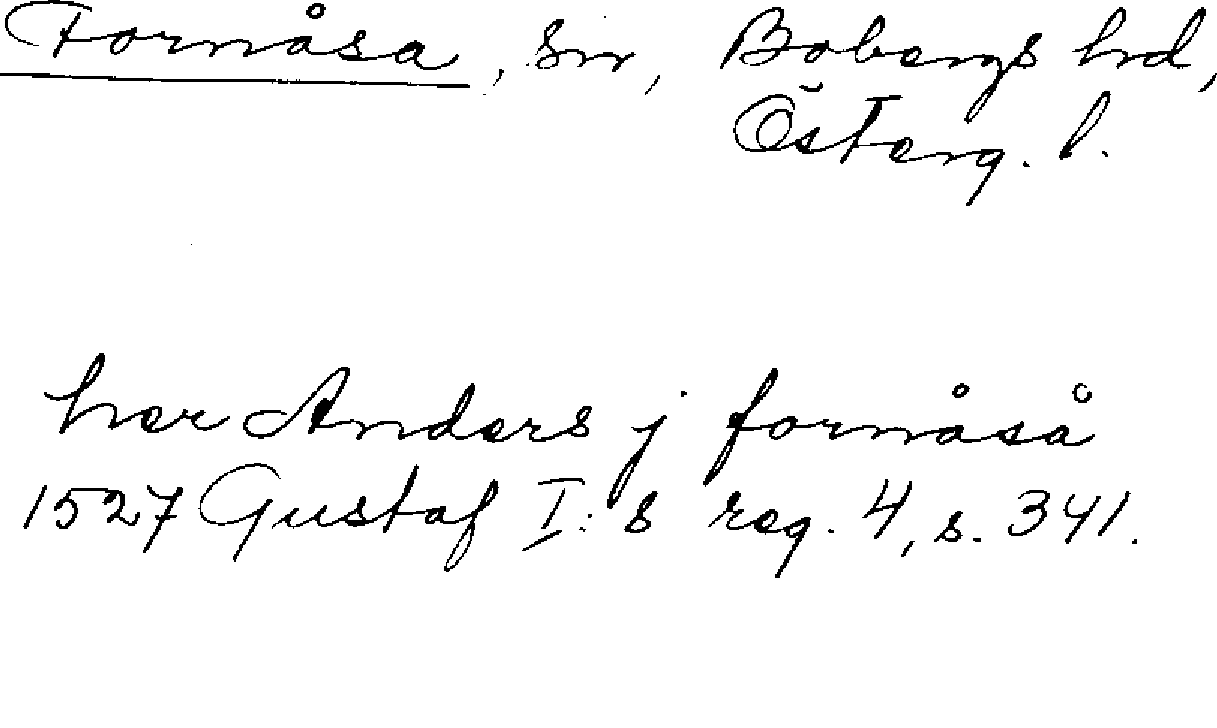 Fornåsa, sn, Bobergs hd,
Österg. l.
her Anders j fornåså
1527 Gustaf I:s reg. 4, s. 341.